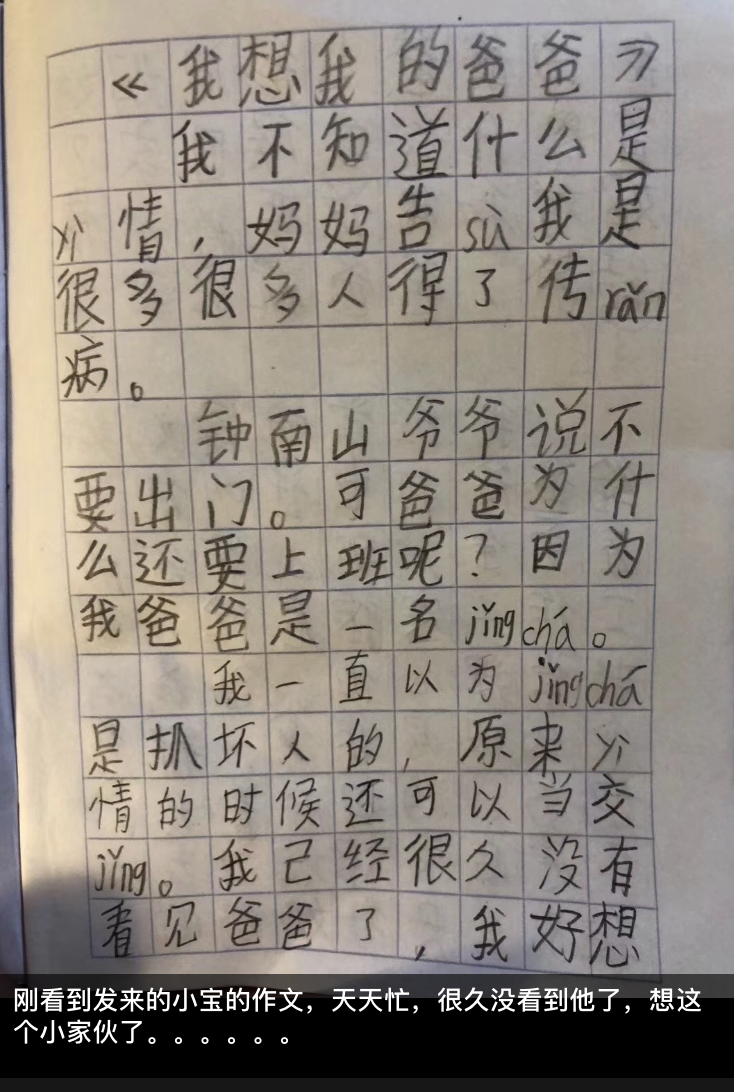 《我想我的爸爸》
我不知道什么是
yì情，妈妈告sù我是
很多很多人得了传rǎn
病。
钟南山爷爷说不
要出门。可爸爸为什
么还要上班呢？因为
我爸爸是一名jǐngchá。
我一直以为jǐngchá
是抓坏人的，原来yì
情的时候还可以当交
jǐng。我己经很久没有
看见爸爸了，我好想
刚看到发来的小宝的作文，天天忙，很久没看到他了，想这
个小家伙了。。。。。。